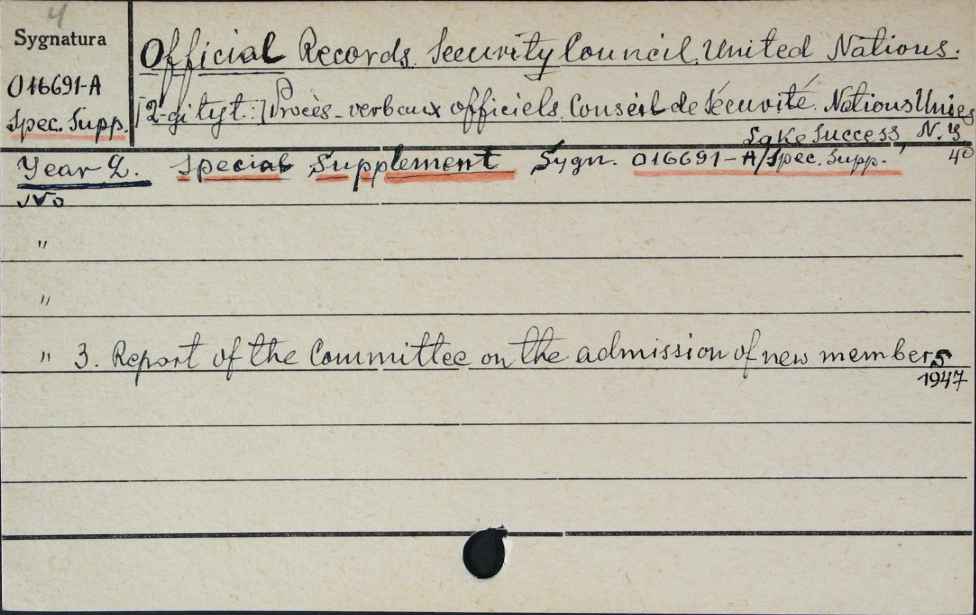 4
Sygnatura
016691-A
Spec. Supp.
Official Records. Security Council, United Nations.
[2-gi tyt.:] Procès-verbaux officiels. Conseil de Sécurité. Nations Unies
Lake Success, N.Y.
4°
Year 2. Special Supplement Sygn. 016691-A/Spec. Supp.
No
"
"
" 3. Report of the Committee on the admission of new members
1947